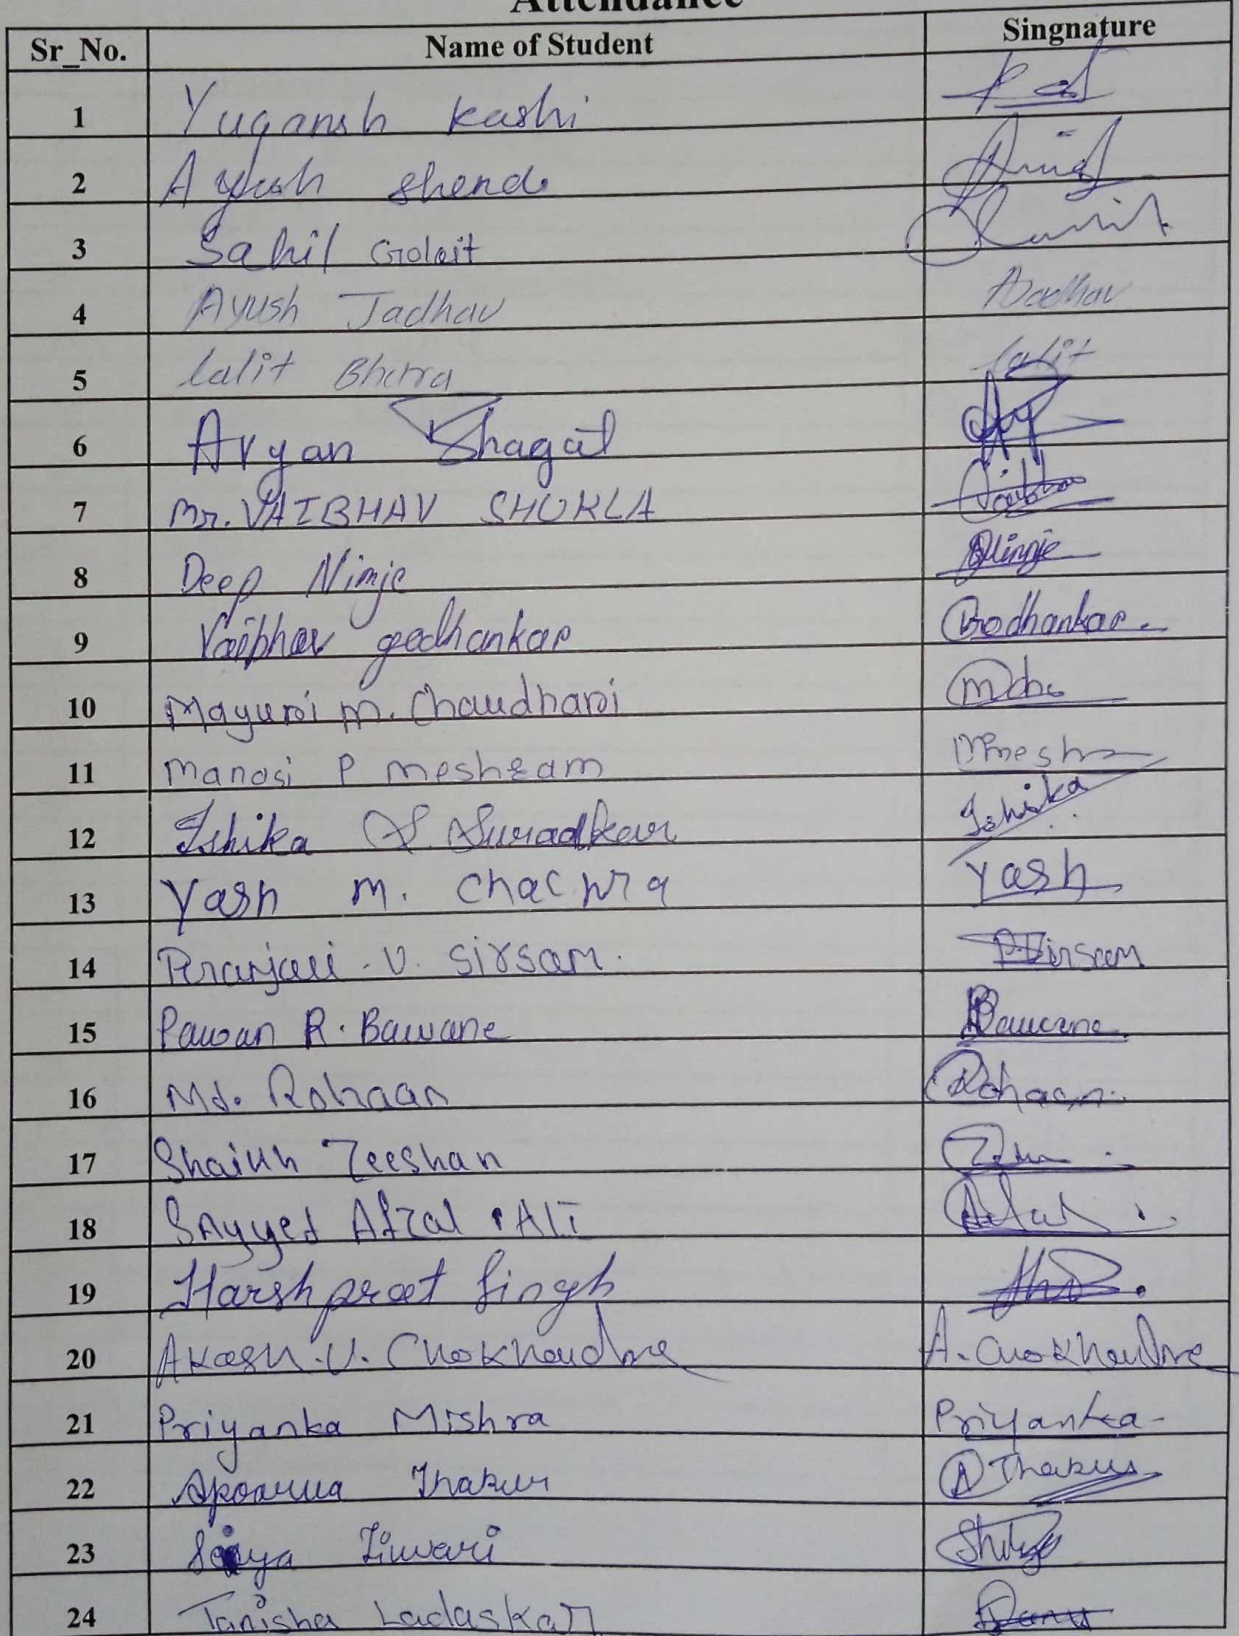 Attendance
Sr_No. Name of Student Singnature
1 Yugansh Kashi
2 Ayush Shende
3 Sahil Golait
4 Ayush Jadhav AJadhav
5 Lalit Bhurra Lalit
6 Aryan Bhagat
7 Mr. VAIBHAV SHUKLA
8 Deep Nimje DNimje
9 Vaibhav godhankar Godhankar.
10 Mayuri M. Chaudhari
11 Manasi P Meshram
12 Ishika S. Suradkar Ishika
13 Yash M. Chachra Yash
14 Pranjali . V. Sirsam. P.Sirsam
15 Pawan R. Bawane Bawane
16 Md. Rohaan Rohaan.
17 Shaikh Zeeshan
18 SAyyed Afzal Ali Afzal
19 Harshpreet Singh
20 Akash. U. Chokhandre A. Chokhandre
21 Priyanka Mishra Priyanka
22 Apoorva Thakur A Thakur
23 Siya Tiwari
24 Tanisha Ladaskar